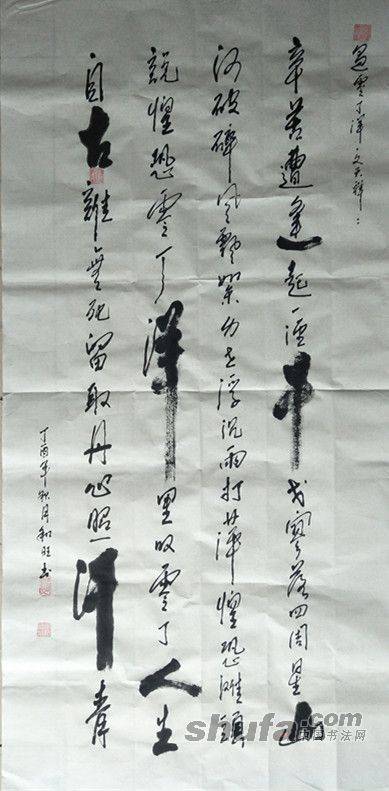 過零丁洋文天祥
辛苦遭逢起一經干戈寥落四周星山
河破碎風飄絮身世浮沉雨打萍惶恐灘頭
説惶恐零丁洋里叹零丁人生
自古誰無死留取丹心照汗青
丁酉年秋月和旺书
shufa.com
中国书法网